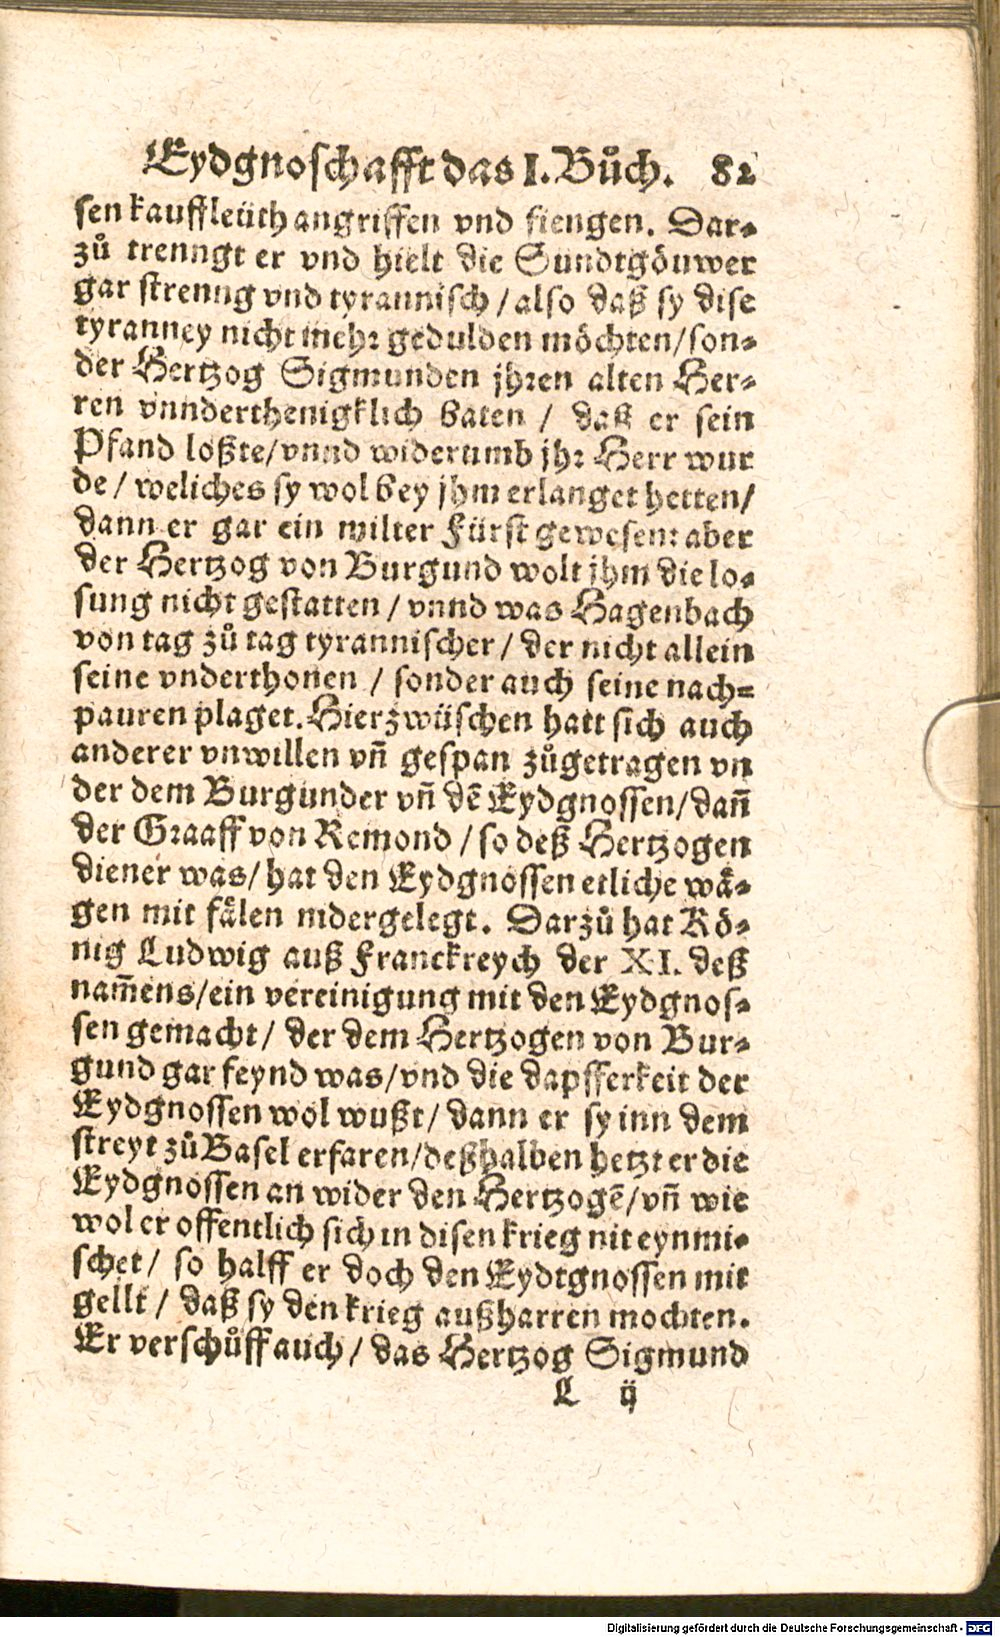 Eydgnoschafft das I. Bůch. 82
sen kauffleüth angriffen vnd fiengen. Dar-
zů trenngt er vnd hielt die Sundtgöuwer
gar strenng vnd tyrannisch / also daß sy dise
tyranney nicht mehr gedulden möchten / son-
der Hertzog Sigmunden jhren alten Her-
ren vnnderthenigklich baten / daß er sein
Pfand loßte / vnnd widerumb jhr Herr wur
de / weliches sy wol bey jhm erlanget hetten /
dann er gar ein milter Fürst gewesen: aber
der Hertzog von Burgund wolt jhm die lo-
sung nicht gestatten / vnnd was Hagenbach
von tag zů tag tyrannischer / der nicht allein
seine vnderthonen / sonder auch seine nach-
pauren plaget. Hierzwüschen hatt sich auch
anderer vnwillen vñ gespan zůgetragen vn
der dem Burgunder vñ dẽ Eydgnossen / dañ
der Graaff von Remond / so deß Hertzogen
diener was / hat den Eydgnossen etliche wä-
gen mit fälen nidergelegt. Darzů hat Kö-
nig Ludwig auß Franckreych der XI. deß
nam̃ens / ein vereinigung mit den Eydgnos-
sen gemacht / der dem Hertzogen von Bur-
gund gar feynd was / vnd die dapfferkeit der
Eydgnossen wol wußt / dann er sy inn dem
streyt zů Basel erfaren / deßhalben hetzt er die
Eydgnossen an wider den Hertzogẽ / vñ wie
wol er offentlich sich in disen krieg nit eynmi-
schet / so halff er doch den Eydtgnossen mit
gellt / daß sy den krieg außharren mochten.
Er verschůff auch / das Hertzog Sigmund
L ij
Digitalisierung gefördert durch die Deutsche Forschungsgemeinschaft - DFG